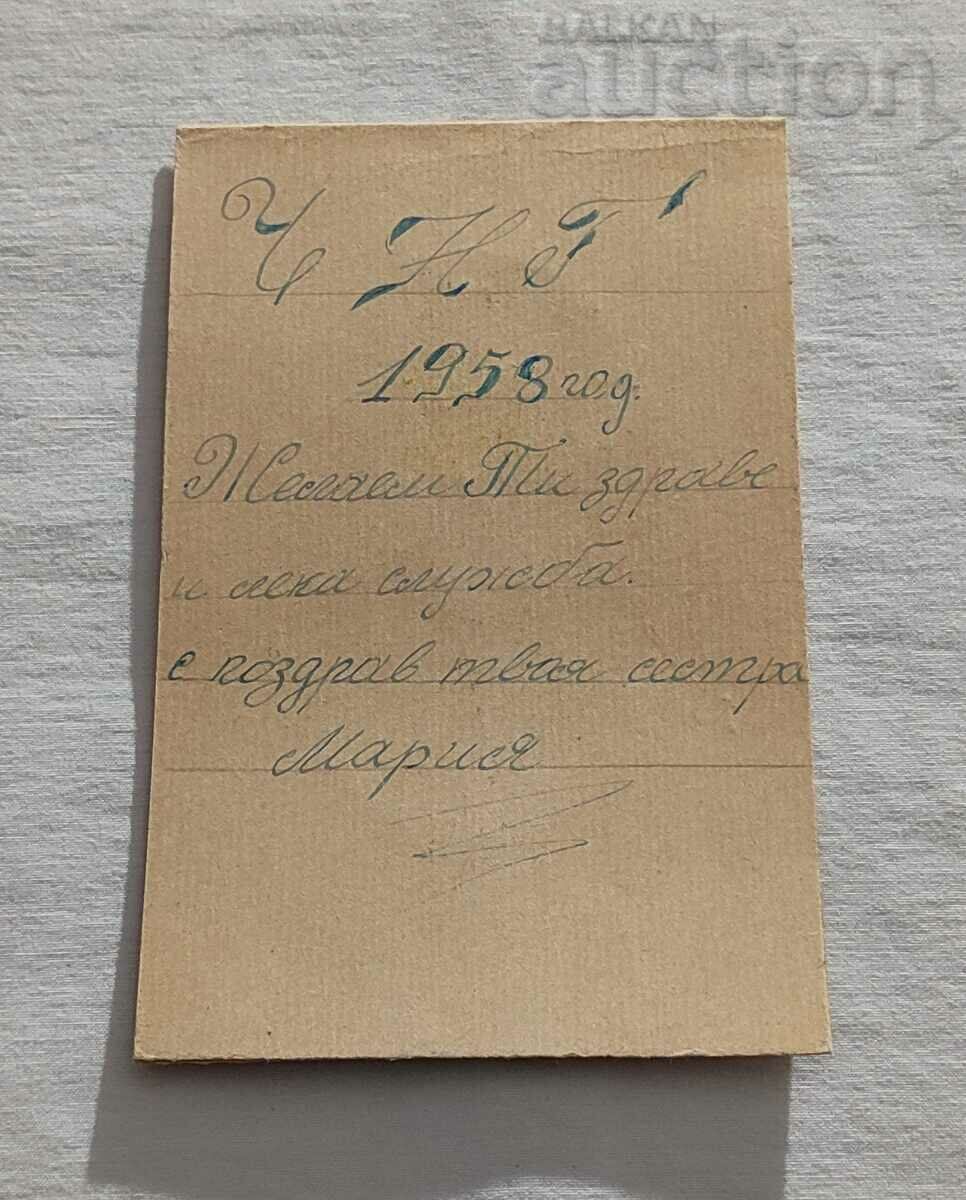 BALKAN
auction
Ч Н Г'
1958 год.
Желаем Ти здраве
и лека служба.
с поздрав твоя сестра
Мария